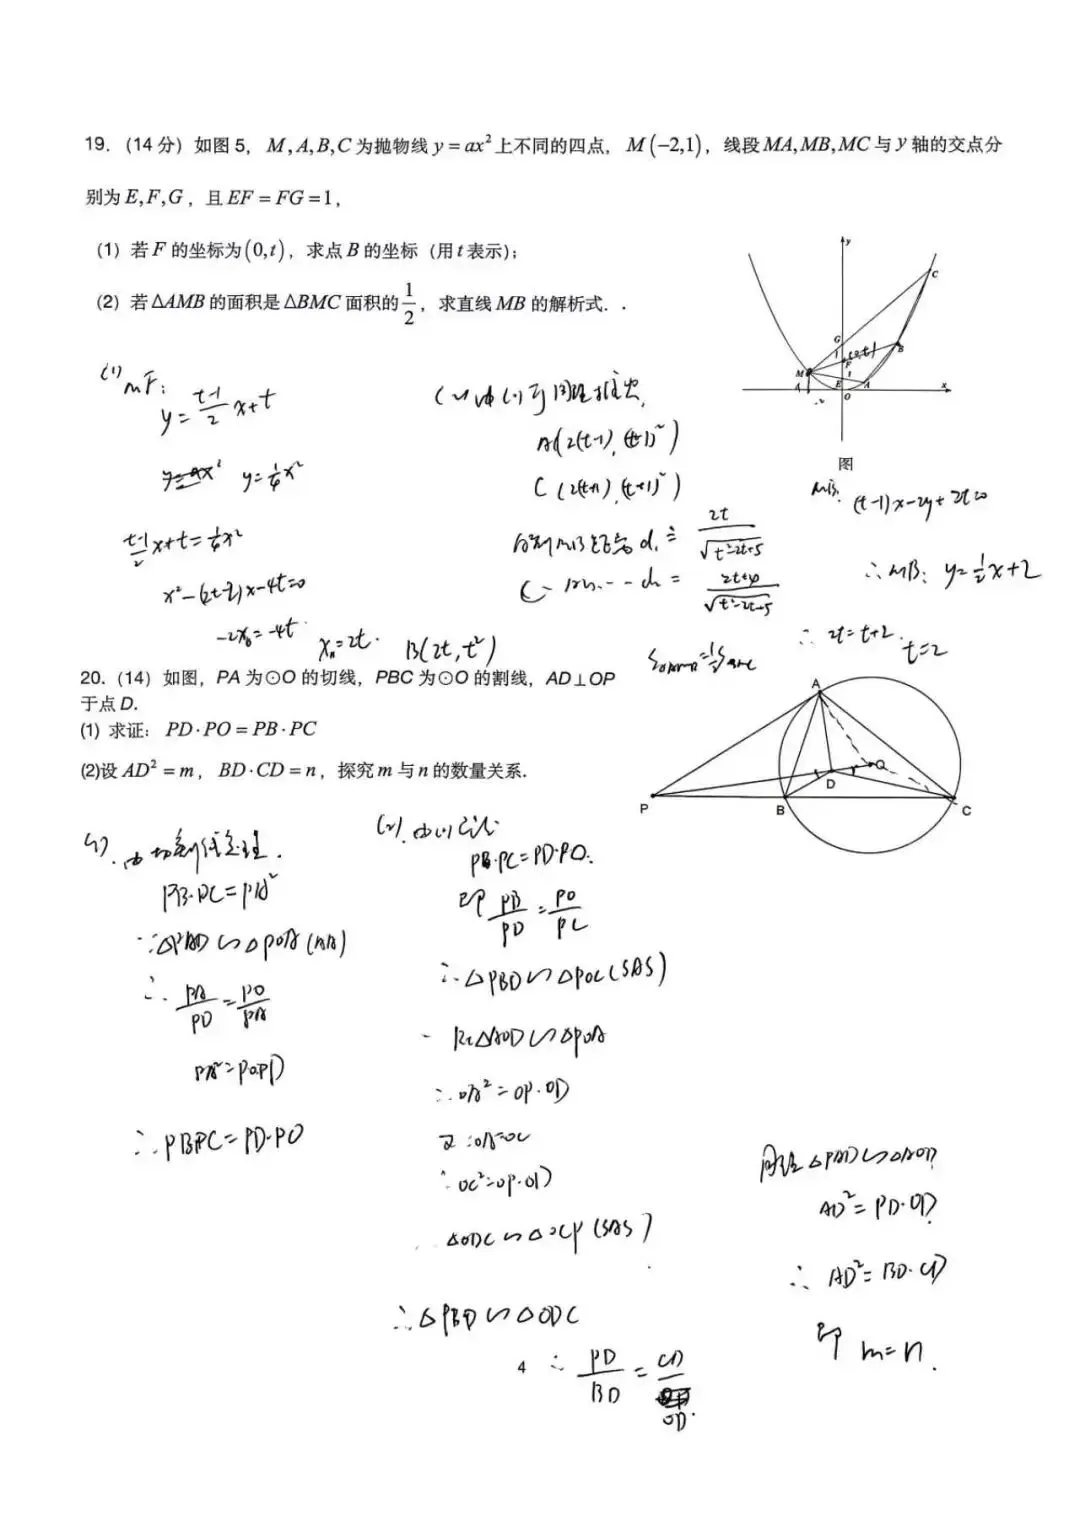 19. (14 分) 如图 5, M,A,B,C 为抛物线 y=ax² 上不同的四点, M(-2,1), 线段 MA,MB,MC 与 y 轴的交点分
别为 E,F,G, 且 EF=FG=1,
(1) 若 F 的坐标为(0,t), 求点 B 的坐标 (用 t 表示);
(2) 若△AMB 的面积是△BMC 面积的 1/2, 求直线 MB 的解析式. .
y
C
G
1
(0,t)
B
F
M
1
E
A
O
x
-2
图
(1) MF:
y= (t-1)/2 x+t
y=1/4 x²
(t-1)/2 x+t=1/4 x²
x²-(2t-2)x-4t=0
-2x_B=-4t
x=2t.
B(2t,t²)
A(2(t-1),(t-1)²)
C(2(t+1),(t+1)²)
d₁= 2t/√(t²-2t+5)
MB:
(t-1)x-2y+2t=0
∴MB: y=1/2 x+2
∴ 2t=t+2.
t=2
20. (14) 如图, PA 为⊙O 的切线, PBC 为⊙O 的割线, AD⊥OP
于点 D.
(1) 求证: PD·PO=PB·PC
(2)设 AD²=m, BD·CD=n, 探究 m 与 n 的数量关系.
A
O
D
P
B
C
(1). 由切割线定理.
PB·PC=PA²
∵△PAD∽△POA(AA)
∴ PA/PD=PO/PA
PA²=PO·PD
∴PB·PC=PD·PO
(2). 由(1)
PB·PC=PD·PO.
即 PB/PD=PO/PC
∴△PBD∽△POC(SAS)
Rt△AOD∽△POA
∴OA²=OP·OD
又∵OA=OC
∴OC²=OP·OD
△ODC∽△OCP(SAS)
∴△PBD∽△ODC
∴ PD/BD=CD/OD.
同理△PAD∽△AOD
AD²=PD·OD.
∴ AD²=BD·CD
即 m=n.
4